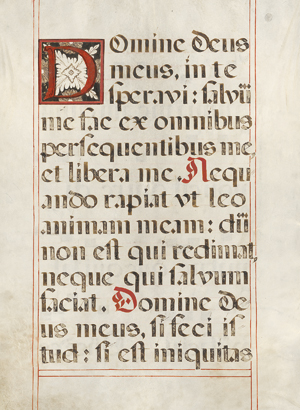 Domine deus
meus, in te
speravi: salvū
me fac ex omnibus
persequentibus me,
et libera me. Nequ
ando rapiat vt leo
animam meam: dū
non est qui redimat,
neque qui salvum
faciat. Domine de
us meus, si feci is
tud: si est iniquitas